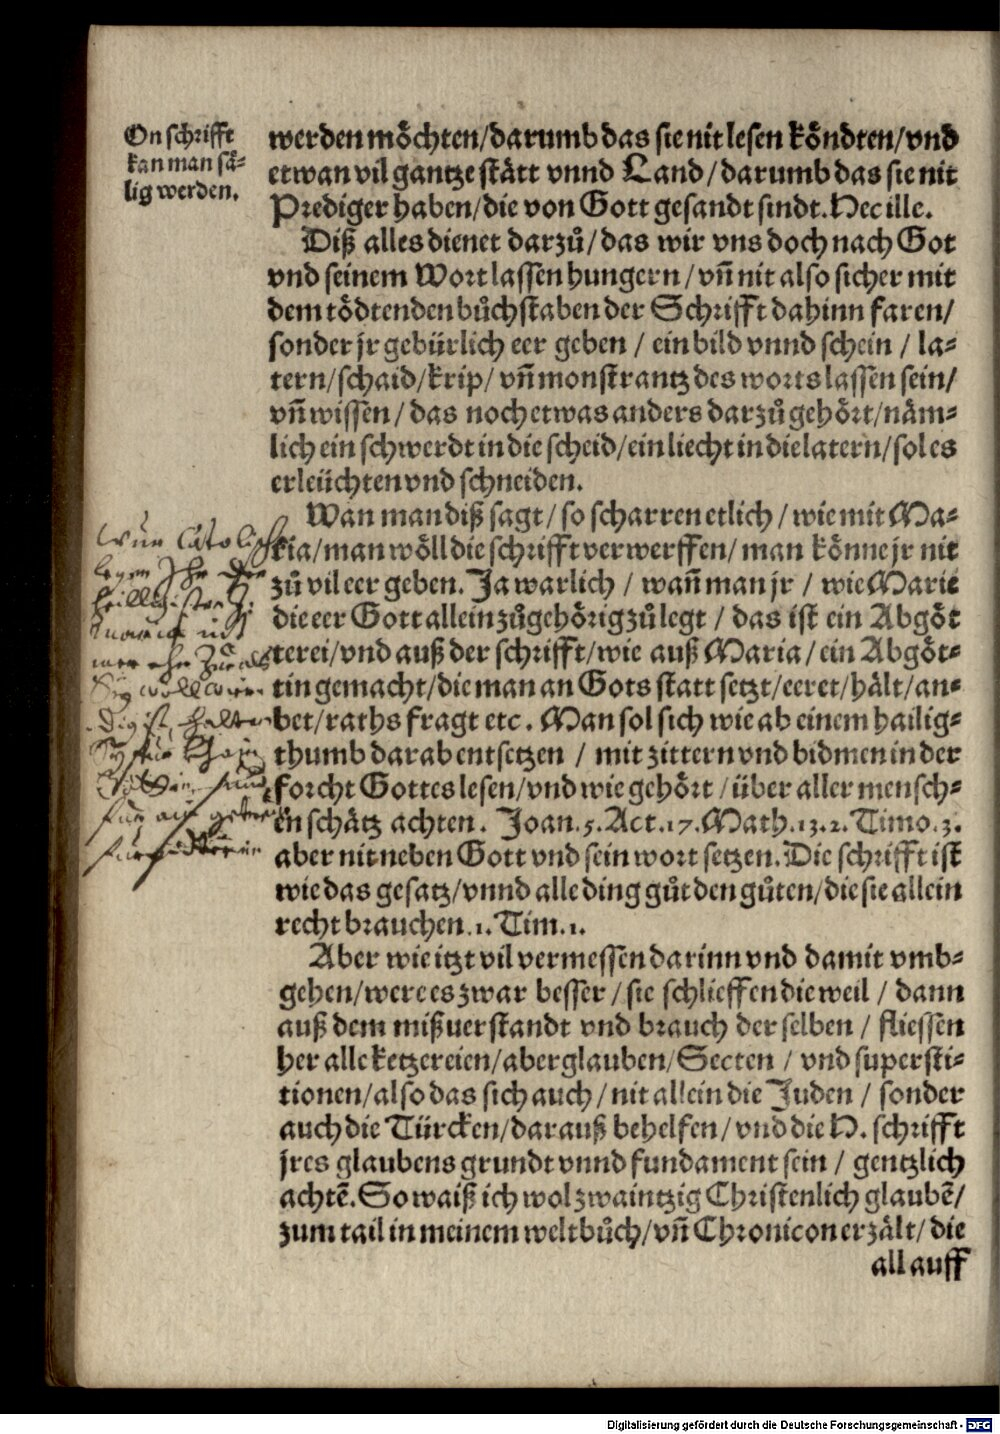 On schrifft
kan man sä-
lig werden.
werden möchten/darumb das sie nit lesen köndten/vnd
etwan vil gantze stätt vnnd Land/darumb das sie nit
Prediger haben/die von Gott gesandt sindt. Hec ille.
Diß alles dienet darzů/das wir vns doch nach Got
vnd seinem Wort lassen hungern/vñ nit also sicher mit
dem tödtenden bůchstaben der Schrifft dahinn faren/
sonder jr gebürlich eer geben / ein bild vnnd schein / la-
tern/schaid/krip/ vñ monstrantz des worts lassen sein/
vñ wissen/ das noch etwas anders darzů gehört/näm-
lich ein schwerdt in die scheid/ein liecht in die latern/sol es
erleüchten vnd schneiden.
Wan man diß sagt/ so scharren etlich / wie mit Ma-
ria/man wöll die schrifft verwerffen/ man könne jr nit
zů vil eer geben. Ja warlich / wañ man jr / wie Marie
die eer Gott allein zůgehörig zů legt / das ist ein Abgöt
terei/vnd auß der schrifft/wie auß Maria/ein Abgöt-
tin gemacht/die man an Gots statt setzt/eeret/hält/an-
bet/raths fragt etc. Man sol sich wie ab einem hailig-
thumb darab entsetzen / mit zittern vnd bidmen in der
forcht Gottes lesen/vnd wie gehört / über aller mensch-
en schätz achten. Joan.5.Act.17.Math.13.2.Timo.3.
aber nit neben Gott vnd sein wort setzen. Die schrifft ist
wie das gesatz/vnnd alle ding gůt den gůten/die sie allein
recht brauchen.1.Tim.1.
Aber wie itzt vil vermessen darinn vnd damit vmb-
gehen/were es zwar besser / sie schlieffen die weil / dann
auß dem mißuerstandt vnd brauch der selben / fliessen
her alle ketzereien/aberglauben/Secten / vnd supersti-
tionen/also das sich auch/nit allein die Juden / sonder
auch die Türcken/darauß behelfen/vnd die H. schrifft
jres glaubens grundt vnnd fundament sein / gentzlich
achtẽ. So waiß ich wol zwaintzig Christenlich glaubẽ/
zum tail in meinem weltbůch/vñ Chronicon erzält/die
all auff
Digitalisierung gefördert durch die Deutsche Forschungsgemeinschaft - DFG